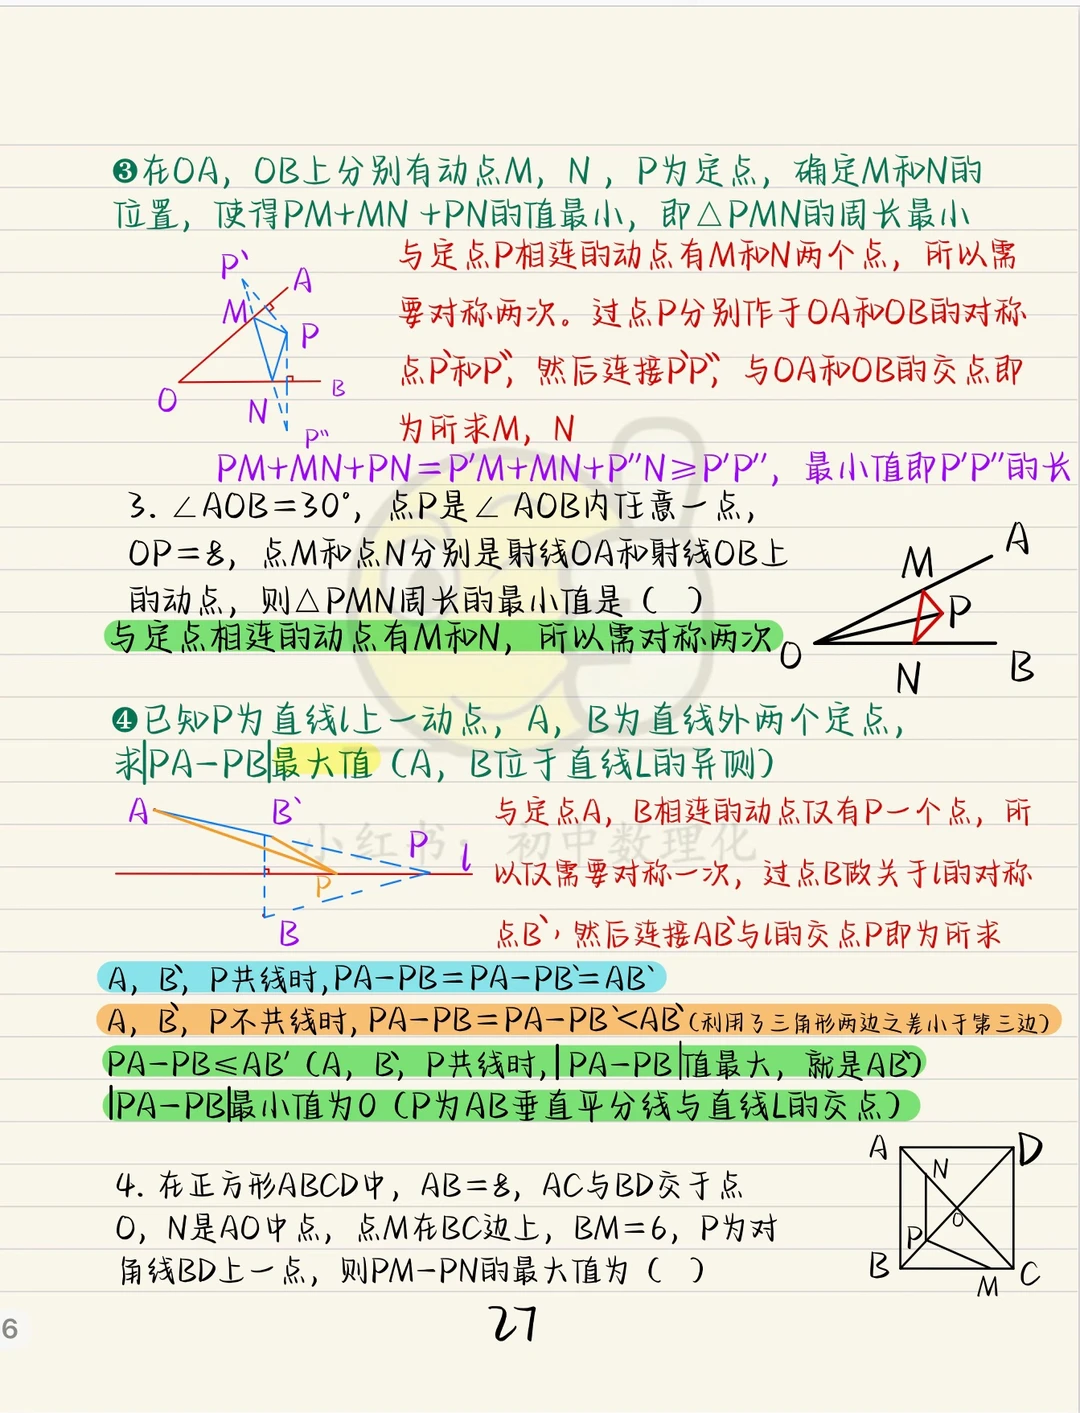 ❸在OA，OB上分别有动点M，N，P为定点，确定M和N的
位置，使得PM+MN+PN的值最小，即△PMN的周长最小
与定点P相连的动点有M和N两个点，所以需
要对称两次。过点P分别作于OA和OB的对称
点P`和P``，然后连接P`P``，与OA和OB的交点即
为所求M，N
P`
A
M
P
O
N
B
P``
PM+MN+PN=P'M+MN+P''N≥P'P''，最小值即P'P''的长
3. ∠AOB=30°，点P是∠AOB内任意一点，
OP=8，点M和点N分别是射线OA和射线OB上
的动点，则△PMN周长的最小值是（ ）
与定点相连的动点有M和N，所以需对称两次
A
M
P
O
N
B
❹已知P为直线l上一动点，A，B为直线外两个定点，
求|PA-PB|最大值（A，B位于直线L的异侧）
A
B`
P
l
P
B
与定点A，B相连的动点仅有P一个点，所
以仅需要对称一次，过点B做关于l的对称
点B`，然后连接AB`与l的交点P即为所求
小红书：初中数理化
A，B`，P共线时,PA-PB=PA-PB`=AB`
A，B`，P不共线时，PA-PB=PA-PB`<AB`（利用了三角形两边之差小于第三边）
PA-PB≤AB'（A，B`，P共线时,|PA-PB|值最大，就是AB`）
|PA-PB|最小值为0（P为AB垂直平分线与直线L的交点）
4. 在正方形ABCD中，AB=8，AC与BD交于点
O，N是AO中点，点M在BC边上，BM=6，P为对
角线BD上一点，则PM-PN的最大值为（ ）
A
D
N
O
P
B
M
C
27
6